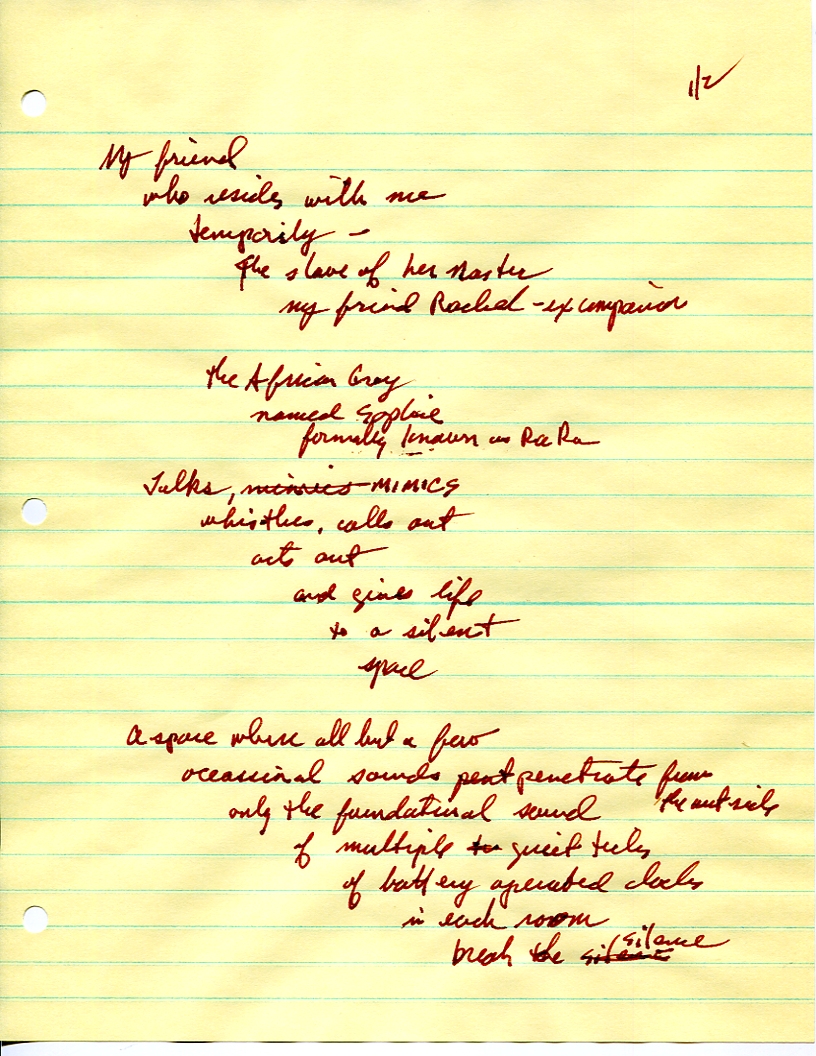 1/2
My friend
who resides with me
temporily –
the slave of her Master
my friend Rachel - ex companion
the African Grey
named Sophie
formally known as Ra Ra
Talks, mimics MIMICS
whisthes, calls out
acts out
and gives life
to a silent
space
A space where all but a few
occassinal sounds pent penetrate from
the outside
only the foundational sound
of multiple quiet ticks
of battery operated clocks
in each room
break the silence silence